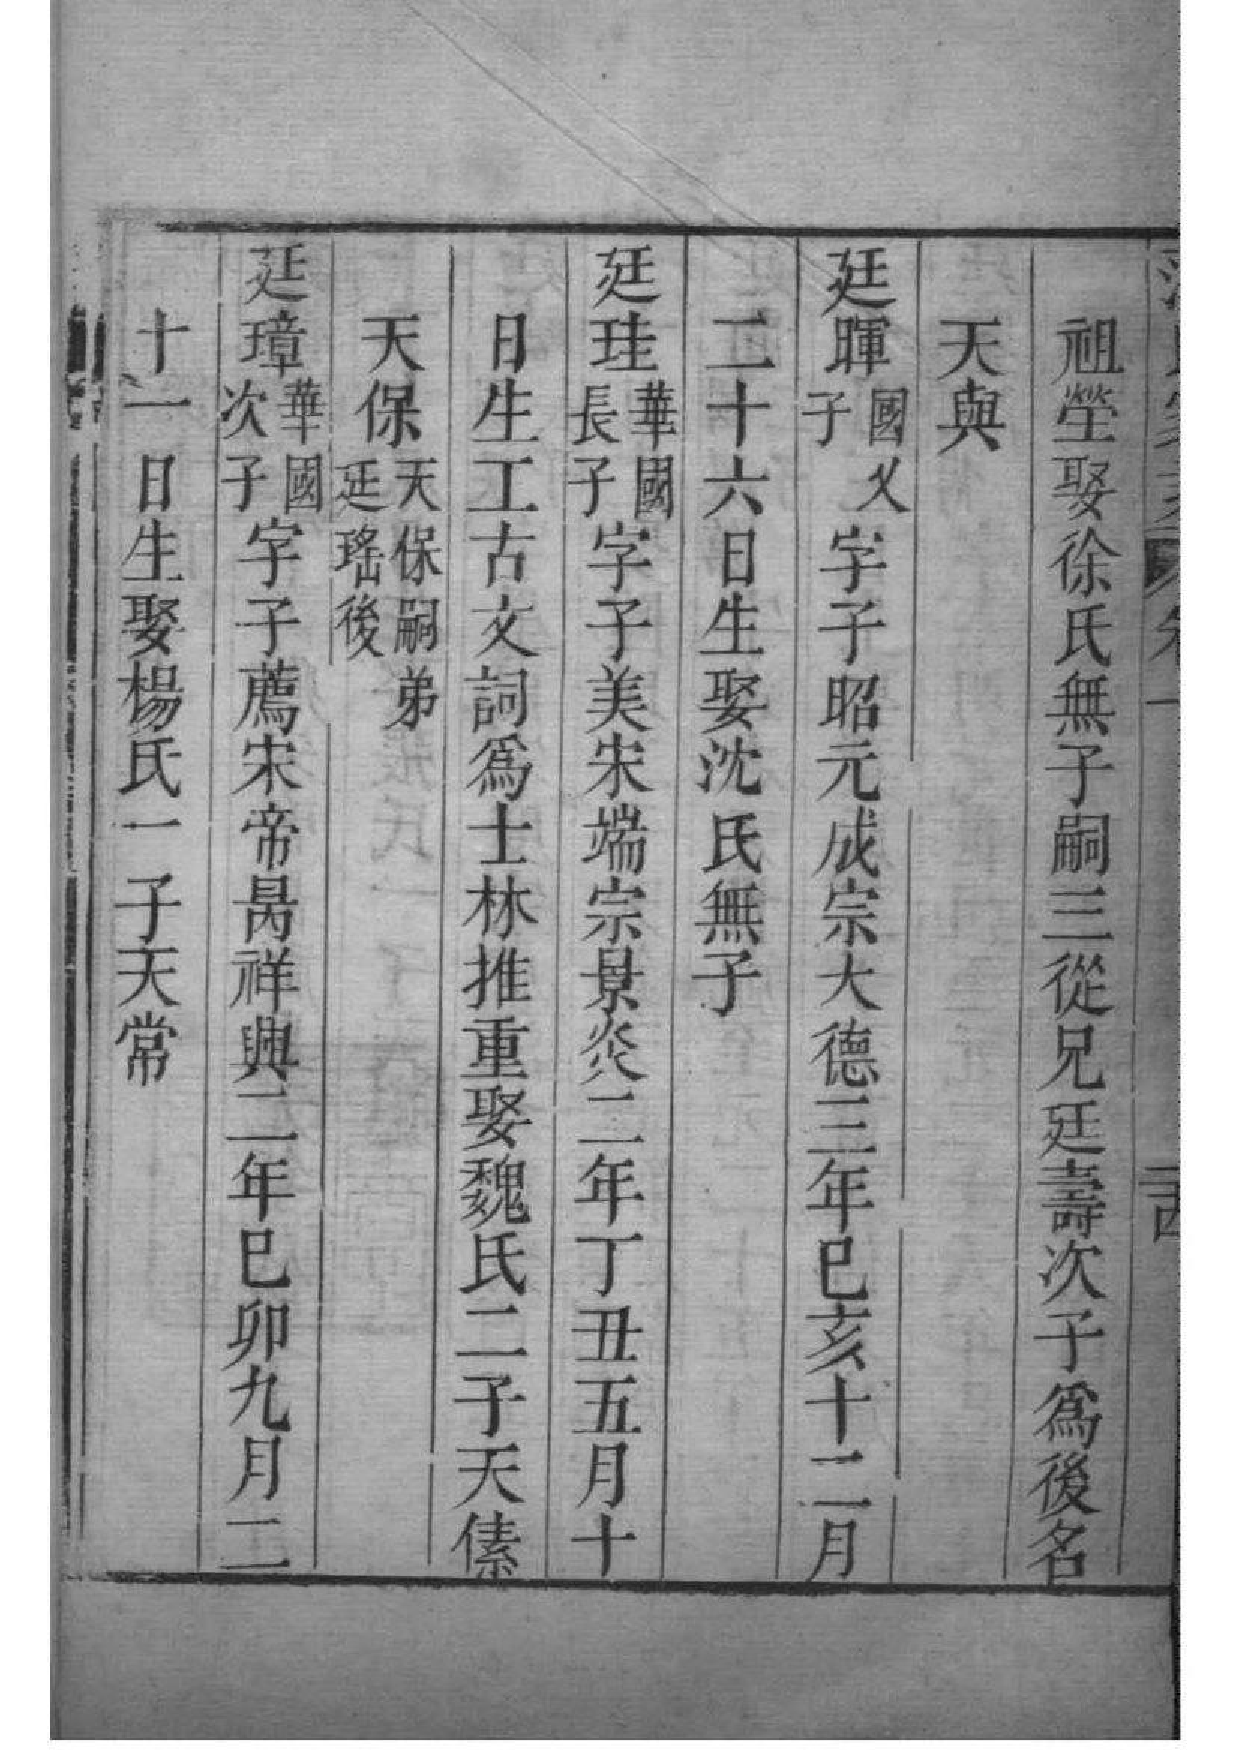 祖塋娶徐氏無子嗣三從兄廷壽次子爲後名
天與
廷暉國乂子字子昭元成宗大德三年巳亥十二月
二十六日生娶沈氏無子
廷珪華國長子字子美宋端宗景炎二年丁丑五月十
日生工古文詞爲士林推重娶魏氏二子天傃
天保天保嗣弟廷瑤後
廷璋華國次子字子薦宋帝昺祥興二年巳卯九月二
十一日生娶楊氏一子天常